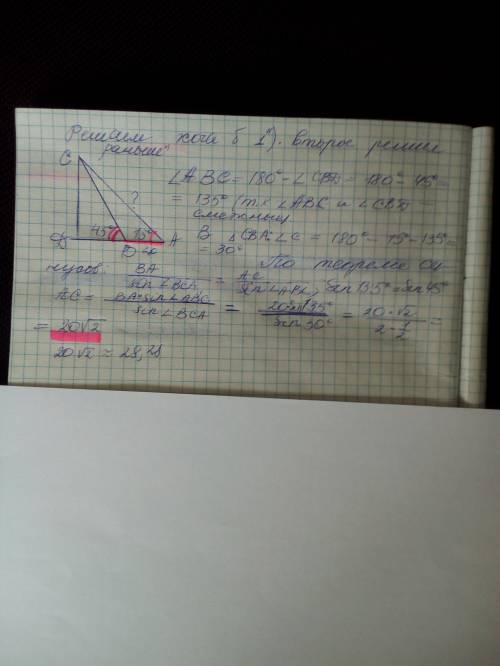 Решаем хотя б 1). второе решим
раньше"
C
∠ABC = 180° - ∠CBD = 180° - 45° =
= 135° (т.к ∠ABC и ∠CBD -
смежные
?
45° 15° A
D B 20
В △CBA: ∠C = 180° - 15° - 135° =
= 30°
По теореме си
нусов: BA / sin∠BCA = AC / sin∠ABC, sin 135° = sin 45°
AC = BA·sin∠ABC / sin∠BCA = 20·sin135° / sin 30° = 20·√2 / 2·½ =
= 20√2
20·√2 ≈ 28,28